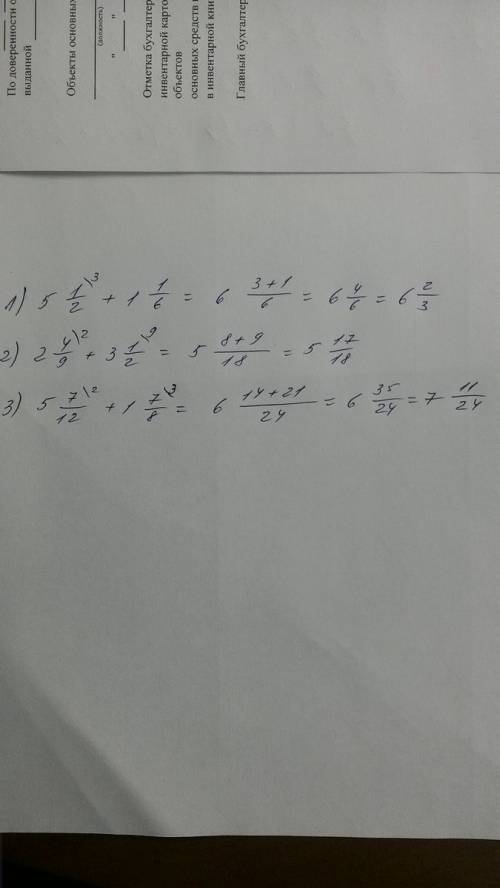 По доверенности о
выданной
Объекты основных
(должность)
" "
Отметка бухгалтер
инвентарной карто
объектов
основных средств
в инвентарной кни
Главный бухгалтер
1) 5 1/2\3 + 1 1/6 = 6 3+1/6 = 6 4/6 = 6 2/3
2) 2 4/9\2 + 3 1/2\9 = 5 8+9/18 = 5 17/18
3) 5 7/12\2 + 1 7/8\3 = 6 14+21/24 = 6 35/24 = 7 11/24